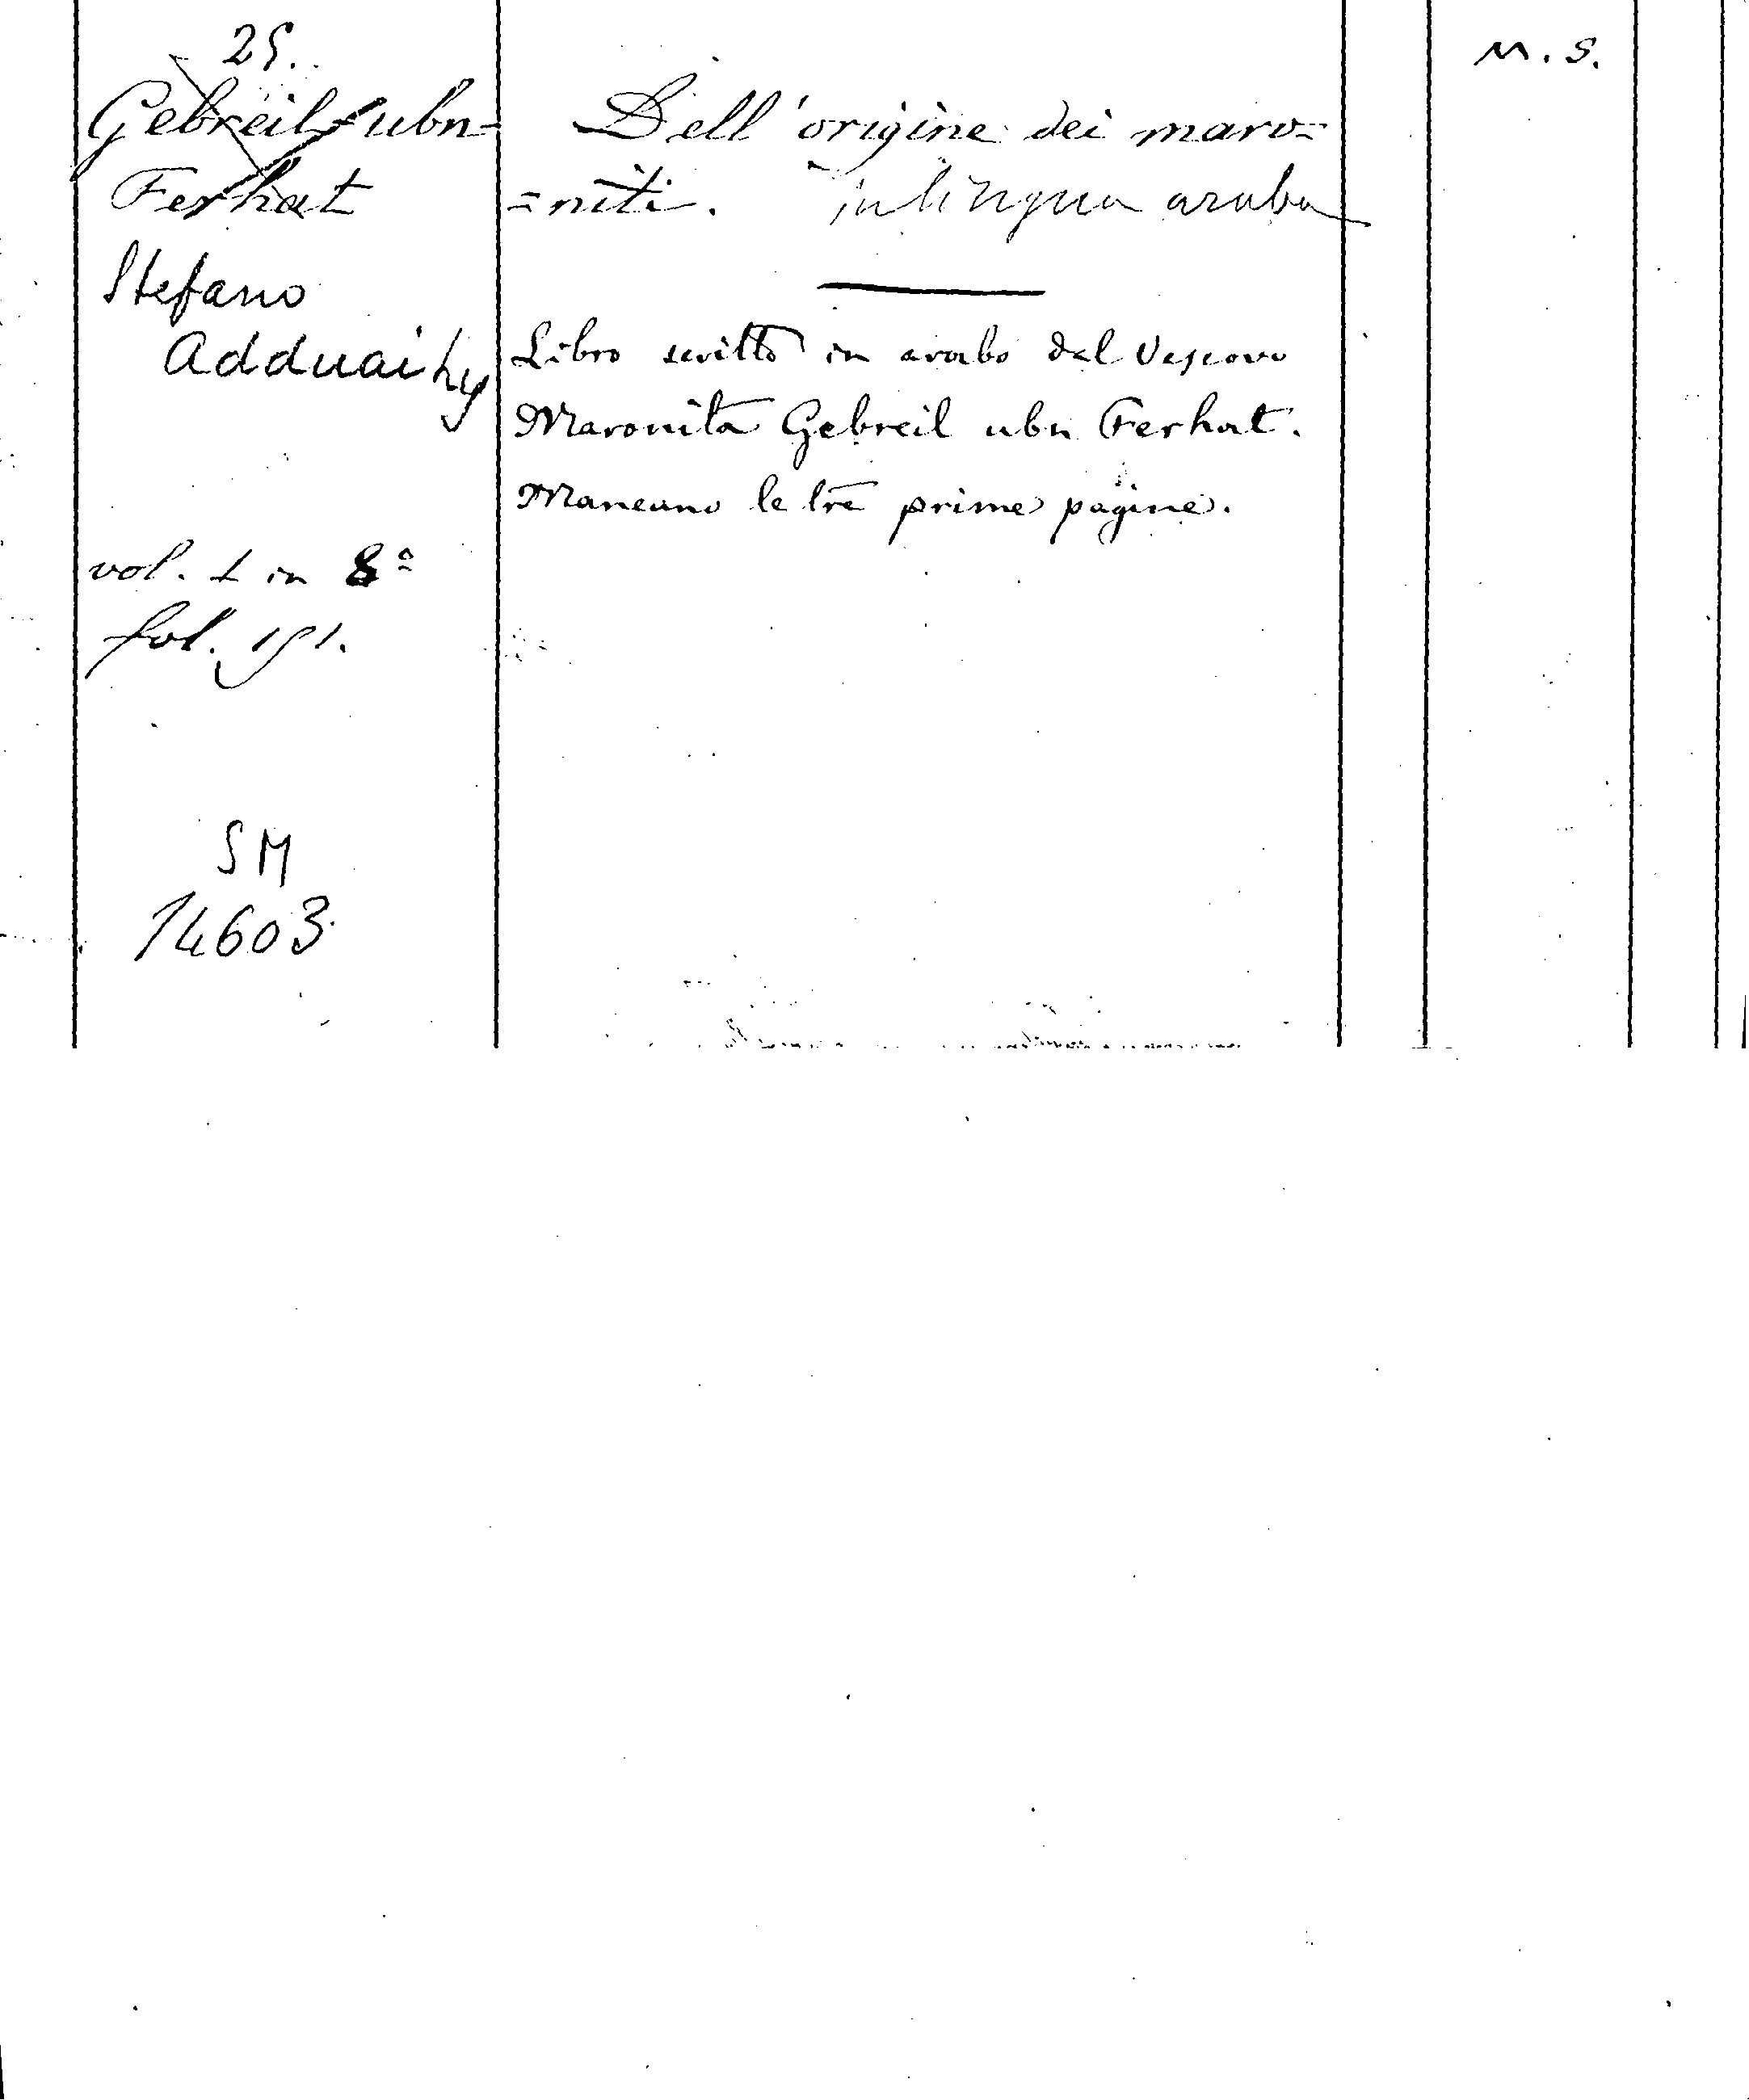 25.
Gebreil ubn=
Ferhat
Stefano
Adduaihy
vol. 1 in 8º
fol. 191.
SM
14603
Dell'origine dei maro=
=niti. in lingua araba
Libro scritto in arabo dal Vescovo
Maronita Gebreil ubn Ferhat.
Mancano le tre prime pagine.
M.S.